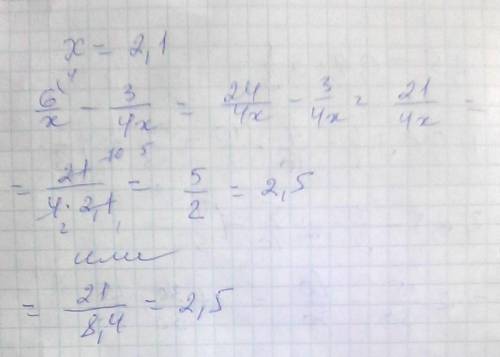 x = 2,1
6^(4/x - 3/4x = 24/4x - 3/4x = 21/4x =
= 21/4·2,1 = 5/2 = 2,5
или
= 21/8,4 = 2,5